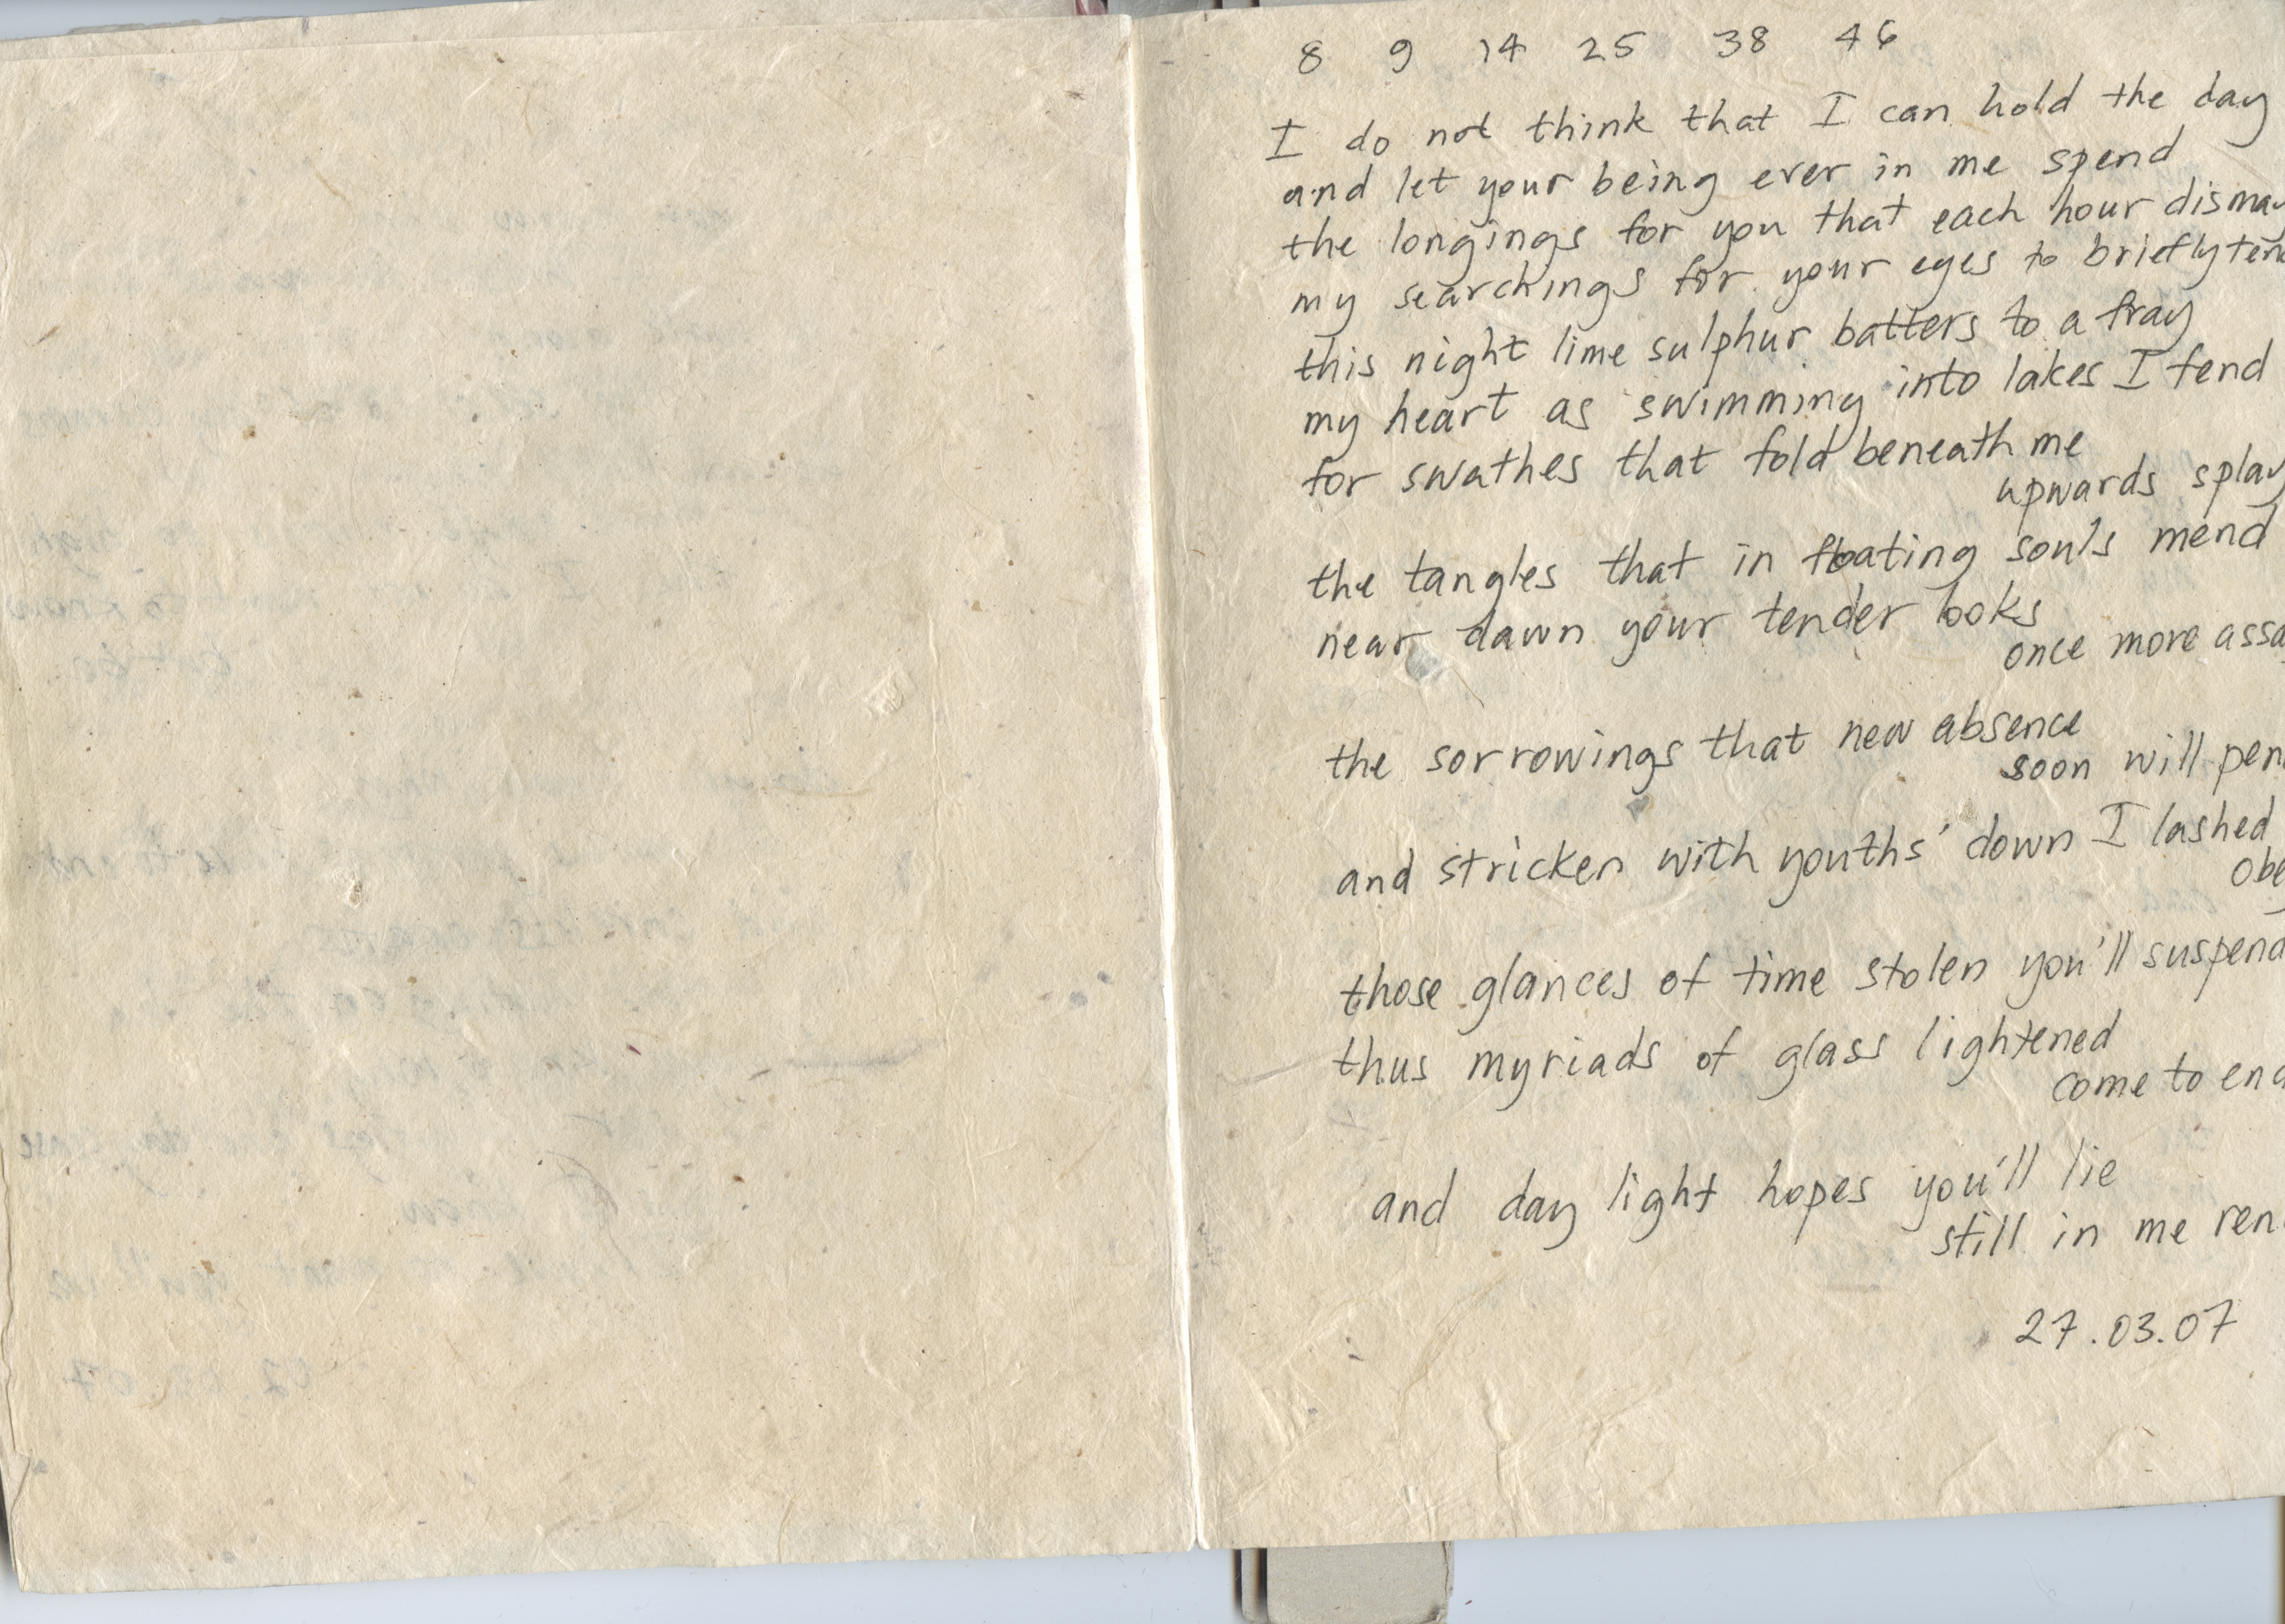 8 9 14 25 38 46
I do not think that I can hold the day
and let your being ever in me spend
the longings for you that each hour dismay
my searchings for your eyes to briefly tend
this night lime sulphur batters to a fray
my heart as swimming into lakes I fend
for swathes that fold beneath me
upwards splay
the tangles that in floating souls mend
near dawn your tender looks
once more assa
the sorrowings that new absence
soon will pen
and stricken with youths' down I lashed
obey
those glances of time stolen you'll suspend
thus myriads of glass lightened
come to end
and day light hopes you'll lie
still in me ren
27.03.07